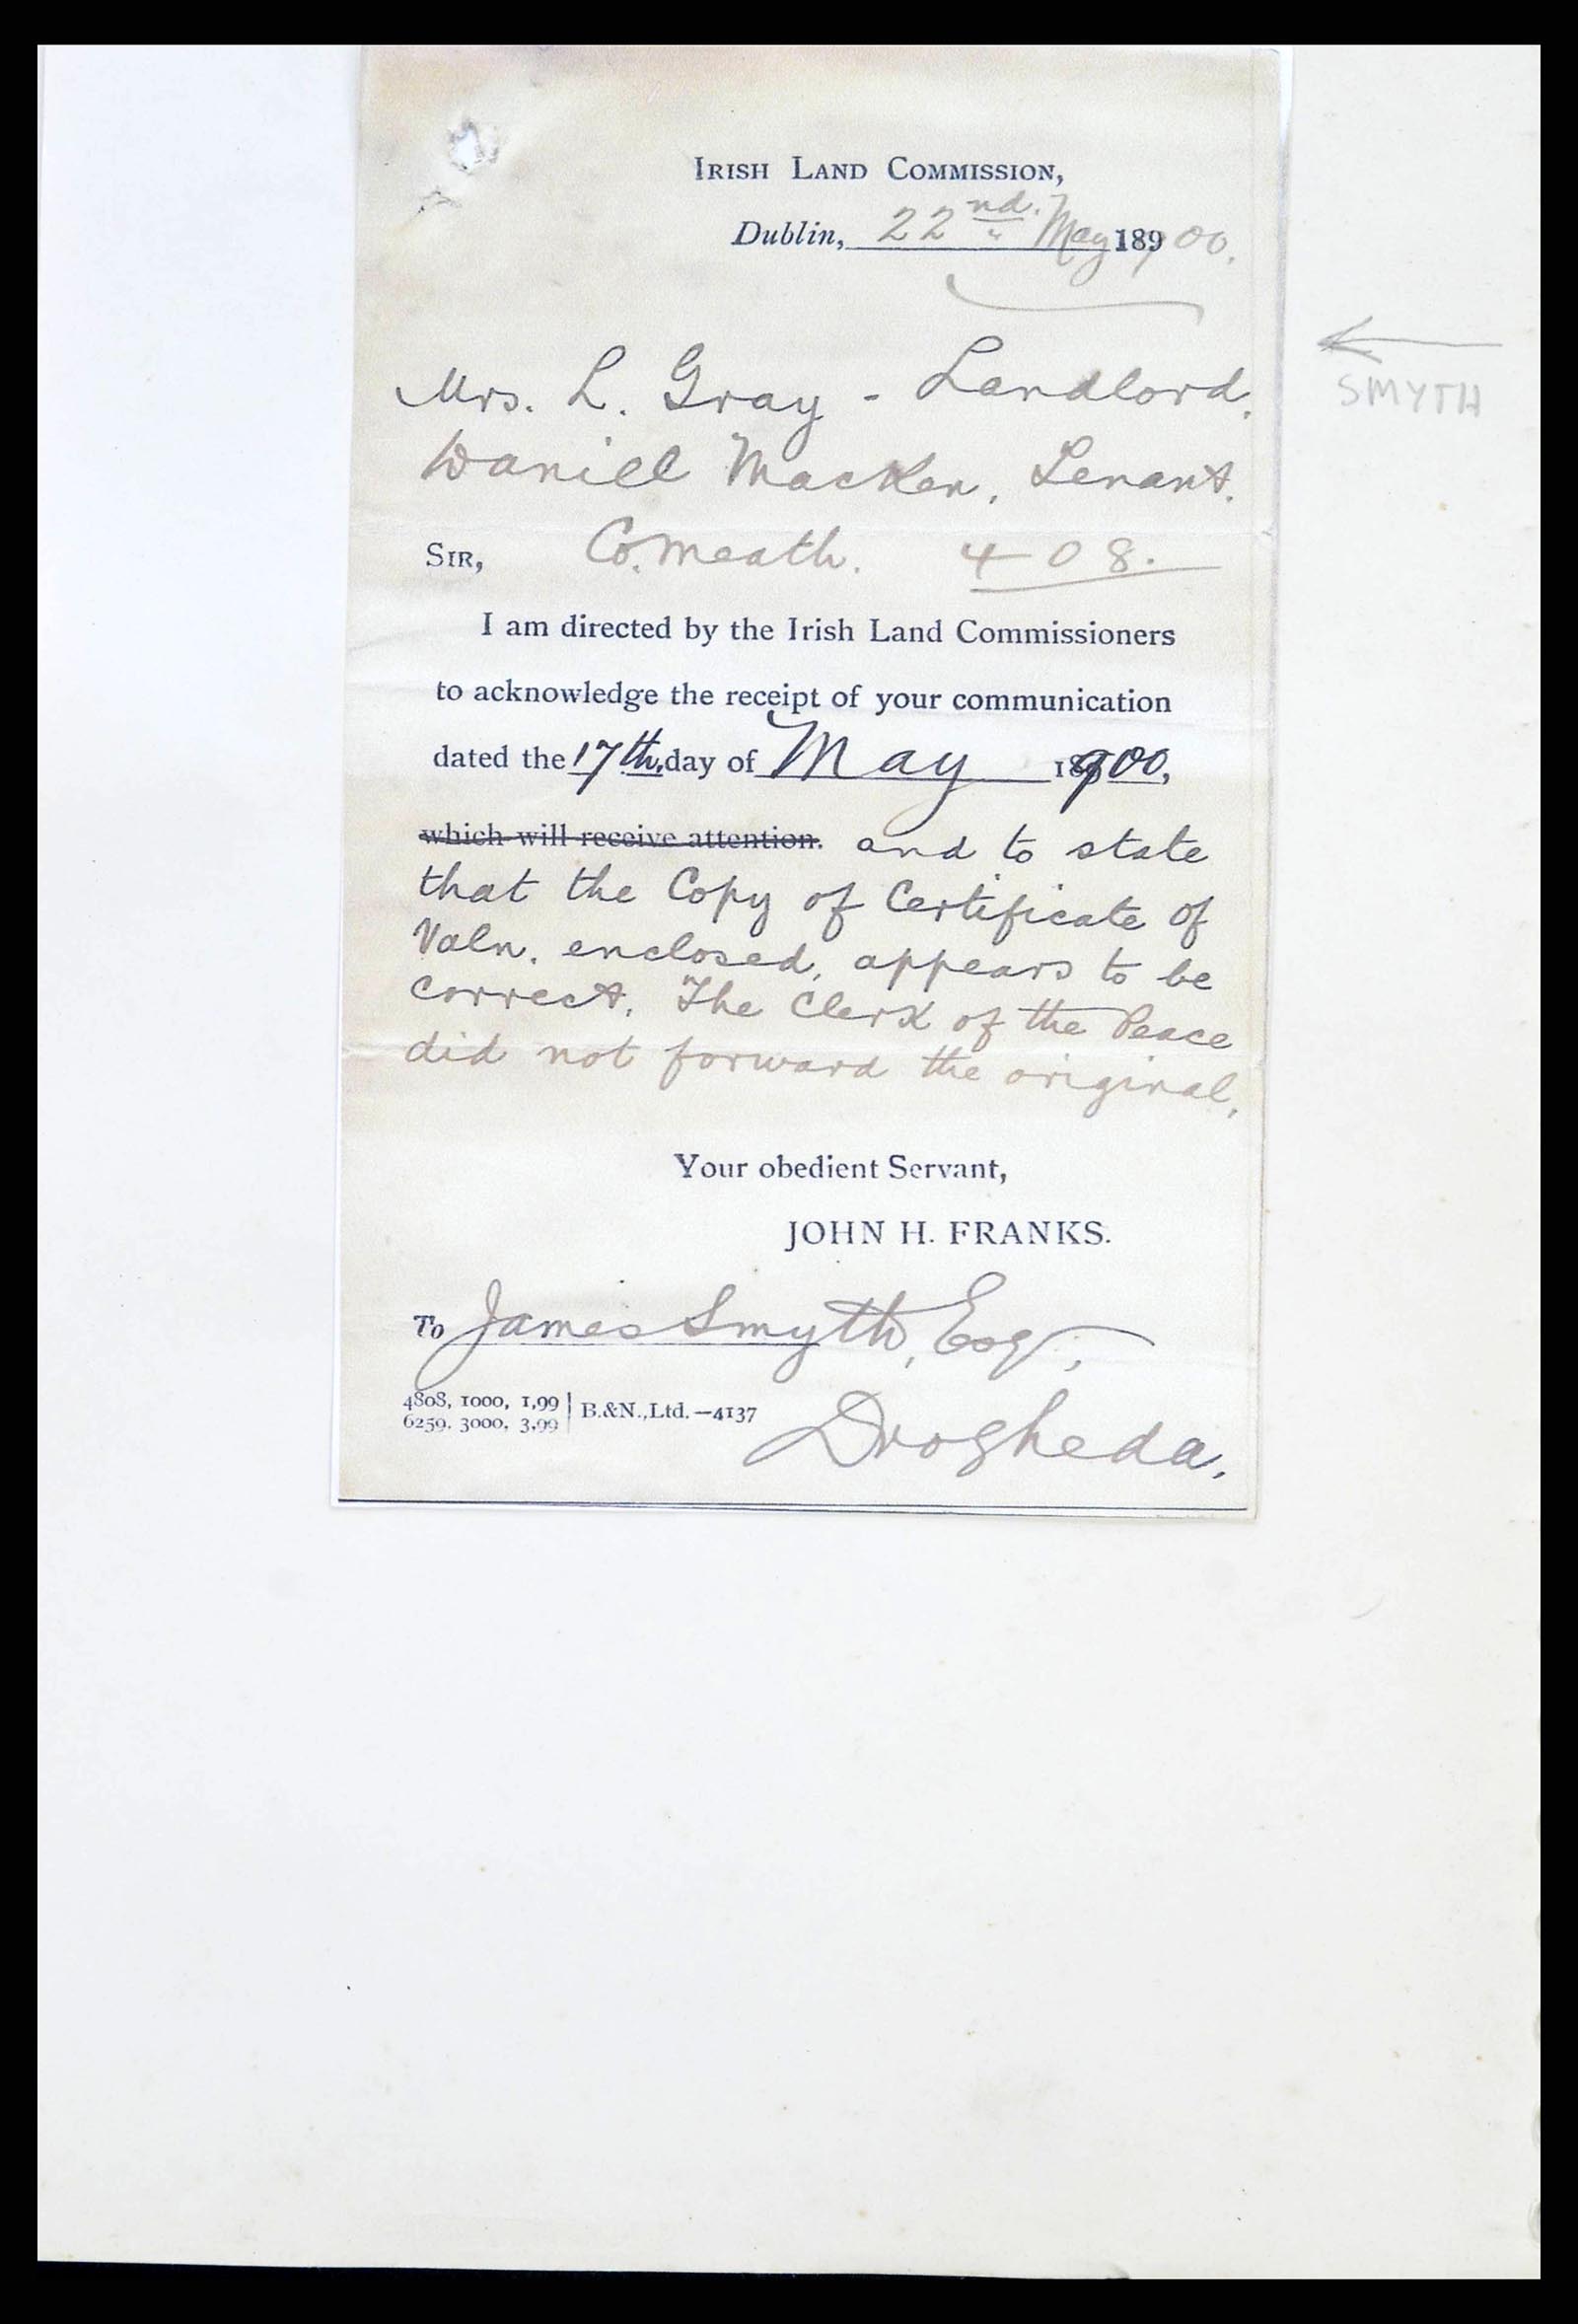 IRISH LAND COMMISSION,
Dublin, 22nd. May 18900.
Mrs. L. Gray - Landlord.
SMYTH
Daniel Macken, Tenant.
SIR, Co. Meath. 408.
I am directed by the Irish Land Commissioners
to acknowledge the receipt of your communication
dated the 17th. day of May 1900,
which will receive attention. and to state
that the Copy of Certificate of
Valn. enclosed, appears to be
correct. The Clerk of the Peace
did not forward the original.
Your obedient Servant,
JOHN H. FRANKS.
To James Smyth, Esqr.,
Drogheda.
4808, 1000, 1,99 | B.&N.,Ltd.—4137
6259. 3000, 3,99